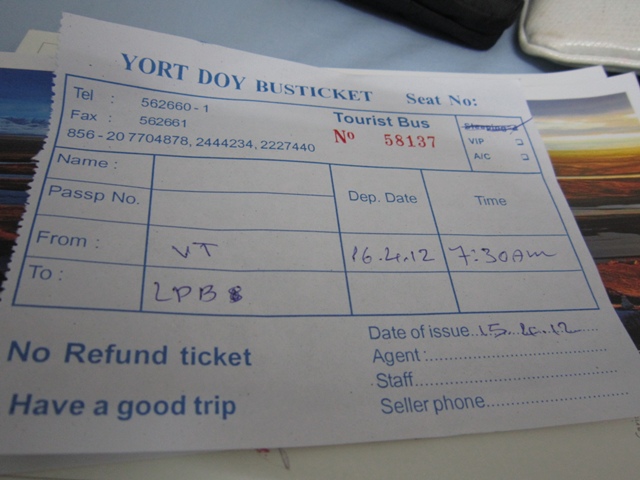 YORT DOY BUSTICKET Seat No:
Tel : 562660 - 1
Fax : 562661
856 - 20 7704878, 2444234, 2227440
Tourist Bus
Nº 58137
Sleeping
VIP
A/C
Name :
Passp No.
Dep. Date
Time
From : VT 16.4.12 7:30am
To : LPB
No Refund ticket
Have a good trip
Date of issue..15..4..12....
Agent:
Staff
Seller phone